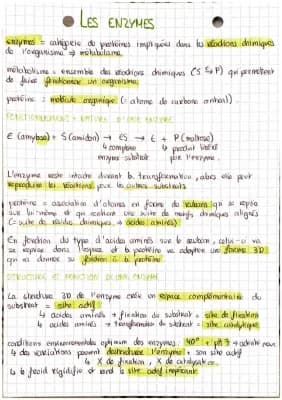 LES ENZYMES
enzymes = catégorie de protéines impliquées dans les réactions chimiques
de l'organisme ⇒ métabolisme.
métabolisme = ensemble des réactions chimiques (S → P) qui permettent
de faire fonctionner un organisme.
protéine = molécule organique (= atome de carbone)
FONCTIONNEMENT + NATURE D'UNE ENZYME
E (amylase) + S (amidon) → ES → E + P (maltose)
↳ complexe ↳ produit libéré
enzyme-substrat par l'enzyme.
L'enzyme reste intacte durant la transformation, elle peut
reproduire les réactions pour les autres substrats
protéine = association d'atomes en forme de rubans qui se replie
sur lui-même et qui contient une suite de motifs chimiques alignés
(= suite de résidus chimiques → acides aminés)
En fonction du type d'acides aminés sur le ruban, celui-ci va
se replier dans l'espace et la protéine va adopter une forme 3D
qui va donner sa fonction à la protéine
STRUCTURE ET FONCTION D'UNE ENZYME
La structure 3D de l'enzyme crée un espace complémentaire du
substrat = site actif
↳ acides aminés → fixation du substrat = site de fixation
↳ acides aminés → transformation du substrat = site catalytique
conditions environnementales optimum des enzymes: 40° + pH 7 → activité
↳ des variations peuvent déstructurer l'enzyme + son site actif
↳ X de fixation, X de catalysation.
↳ le froid rigidifie et rend le site actif